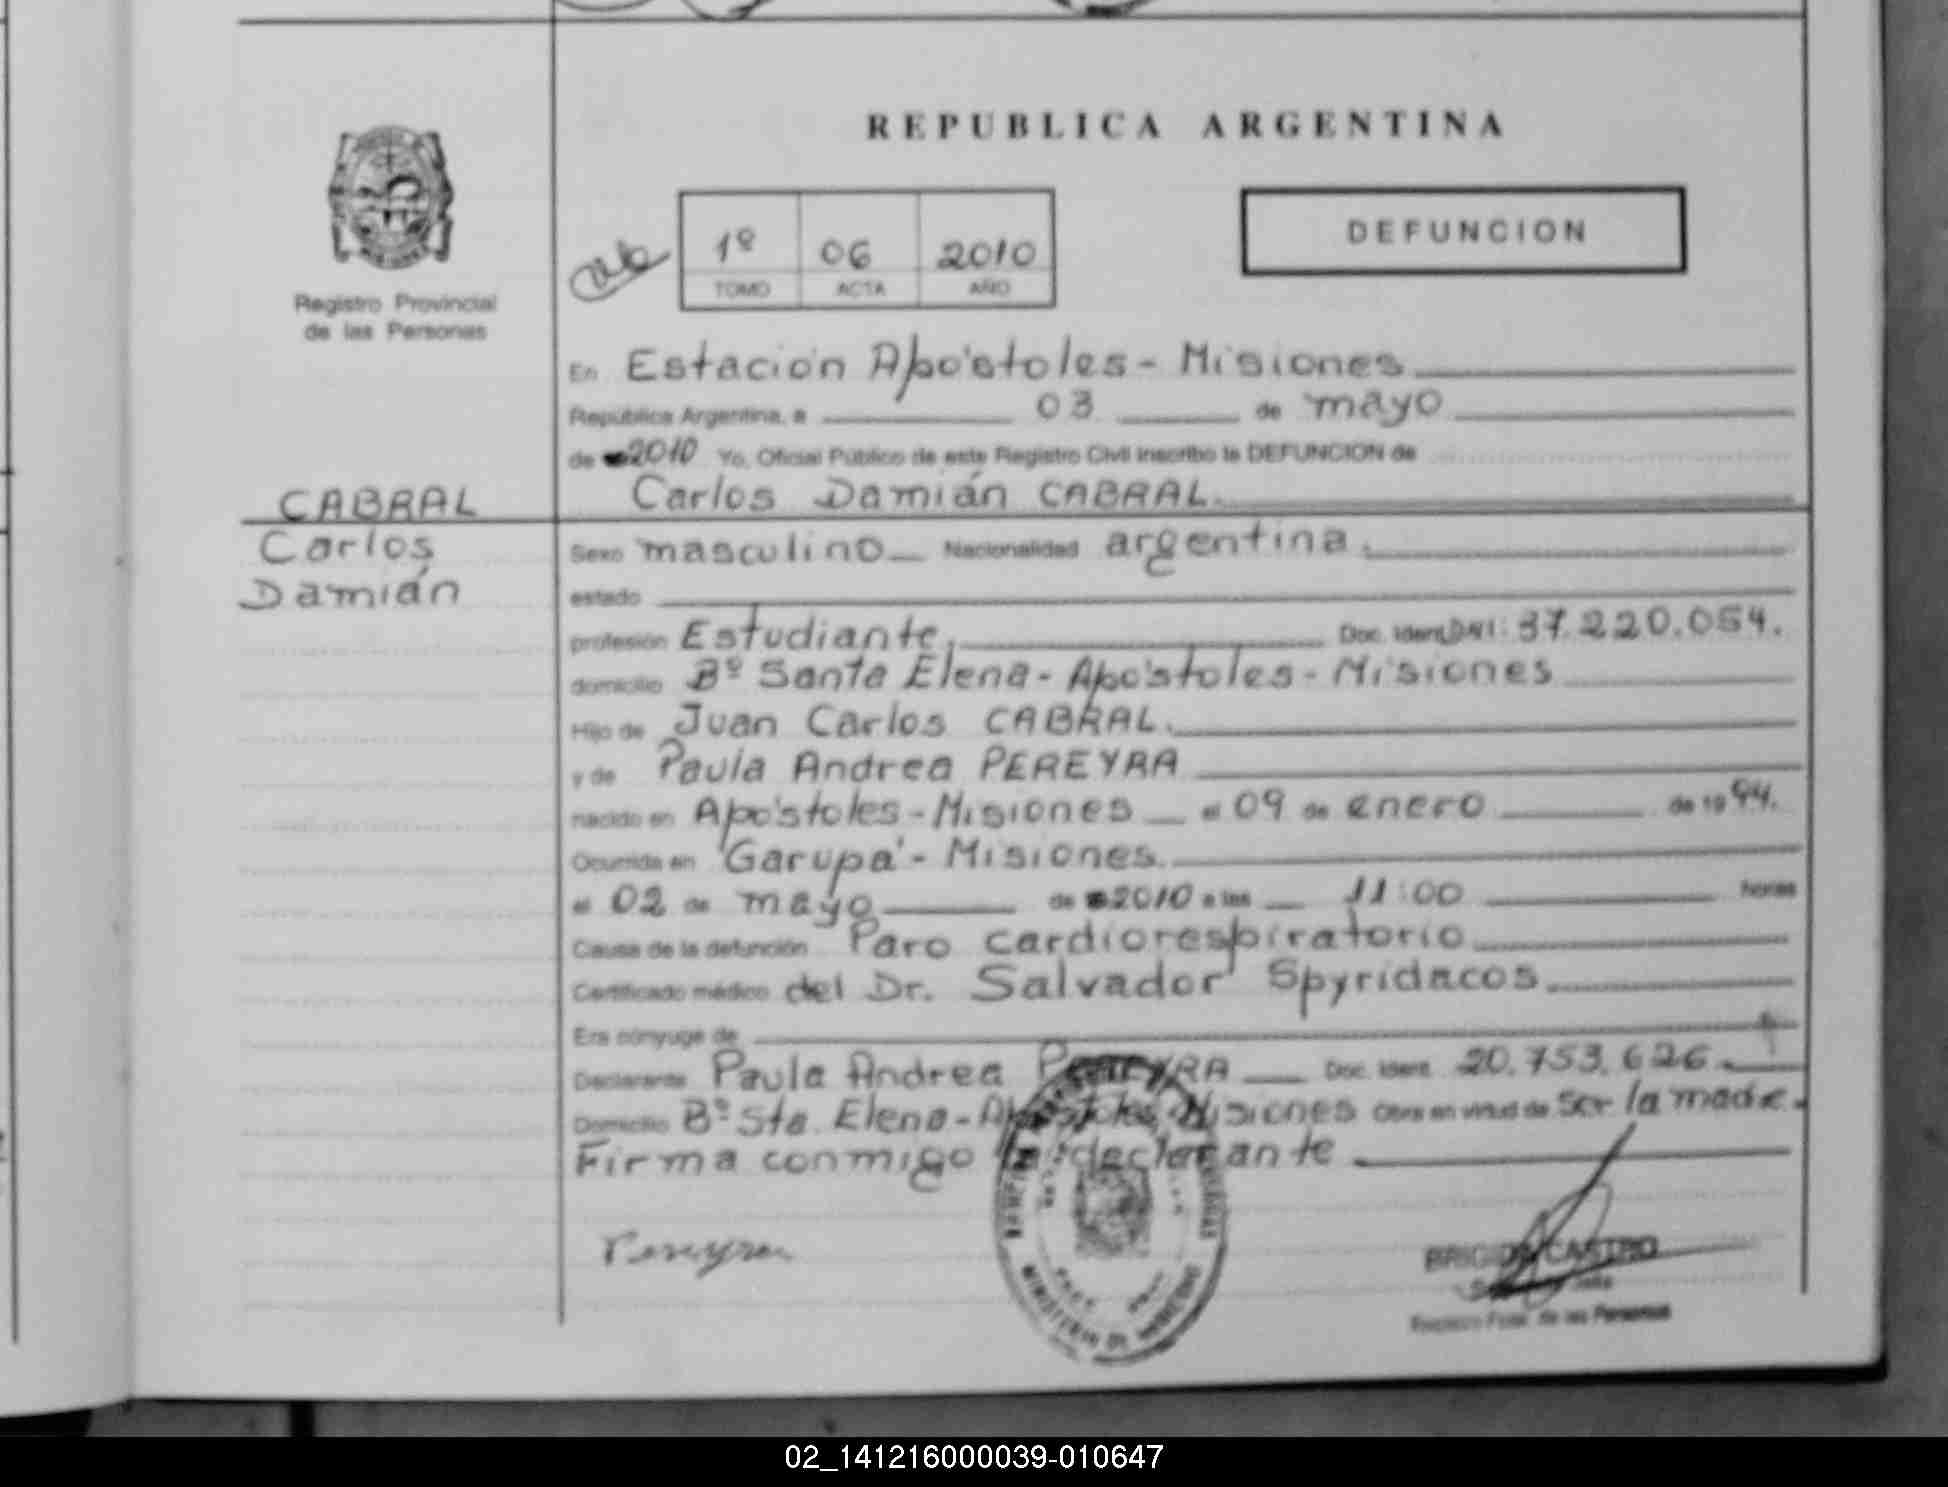 REPUBLICA ARGENTINA
Registro Provincial
de las Personas
1º 06 2010
TOMO ACTA AÑO
DEFUNCION
En Estación Apóstoles - Misiones
República Argentina, a 03 de mayo
de 2010 Yo, Oficial Público de este Registro Civil inscribo la DEFUNCION de
CABRAL
Carlos
Damián
Carlos Damián CABRAL.
Sexo masculino Nacionalidad argentina.
estado
profesión Estudiante. Doc. Ident. DNI: 37.220.054.
domicilio Bº Santa Elena - Apóstoles - Misiones
Hijo de Juan Carlos CABRAL.
y de Paula Andrea PEREYRA
nacido en Apóstoles - Misiones el 09 de enero de 1994.
Ocurrida en Garupá - Misiones.
el 02 de mayo de 2010 a las 11:00 horas
Causa de la defunción Paro cardiorespiratorio
Certificado médico del Dr. Salvador Spyridacos
Era cónyuge de
Declarante Paula Andrea PEREYRA Doc. Ident. 20.753.626.
Domicilio Bº Sta. Elena - Apóstoles, Misiones Obra en virtud de ser la madre.
Firma conmigo la declarante
Pereyra
MINISTERIO DE GOBIERNO
BRIGIDA CASTRO
de las Personas
02_141216000039-010647